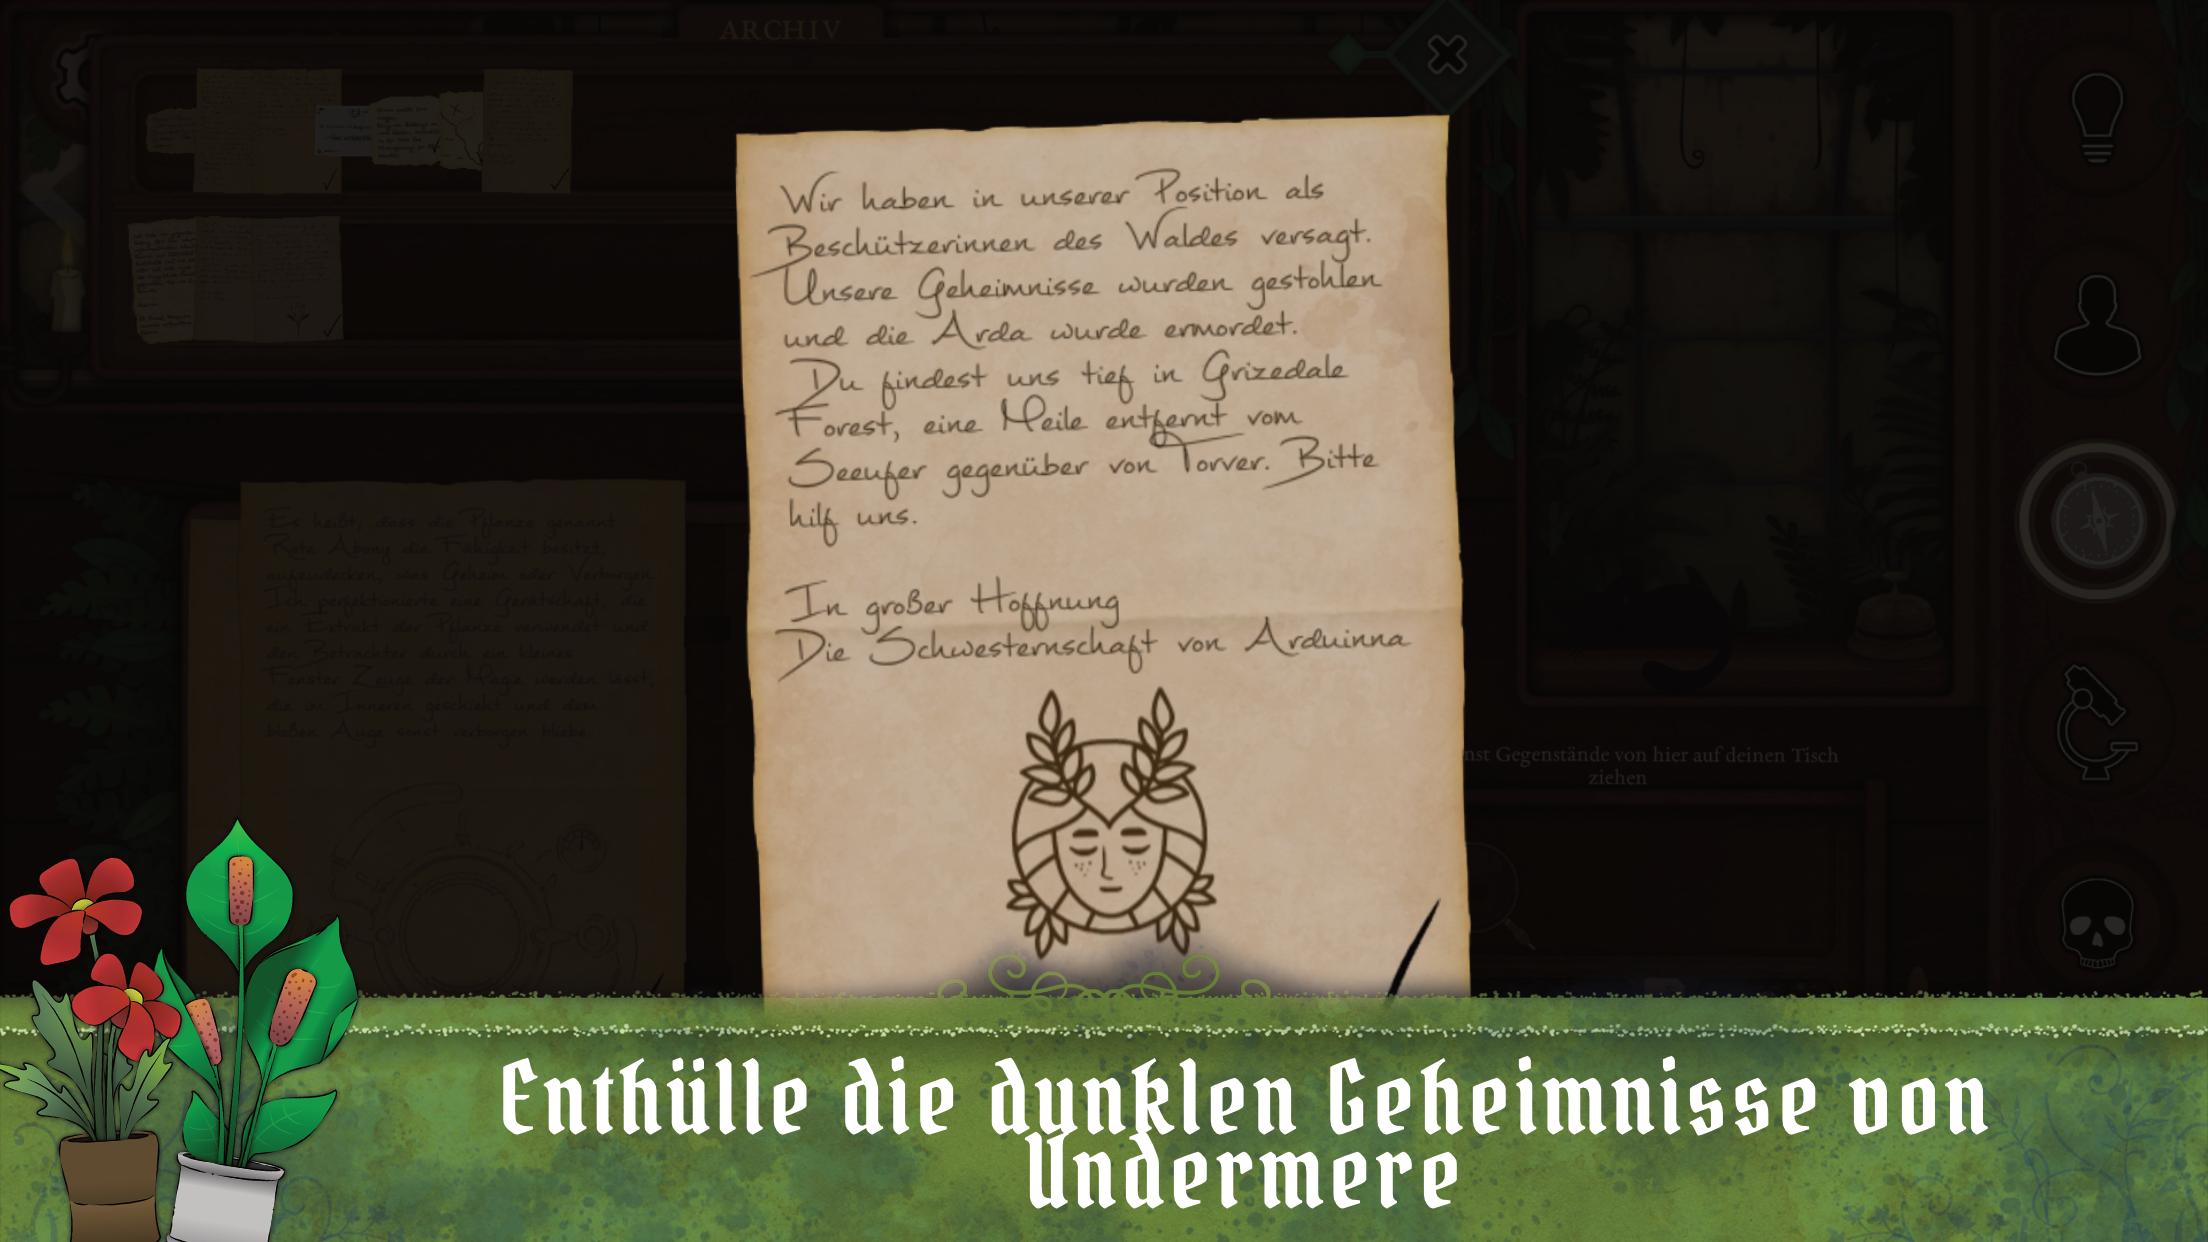 ARCHIV
Wir haben in unserer Position als
Beschützerinnen des Waldes versagt.
Unsere Geheimnisse wurden gestohlen
und die Arda wurde ermordet.
Du findest uns tief in Grizedale
Forest, eine Meile entfernt vom
Seeufer gegenüber von Torver. Bitte
hilf uns.
In großer Hoffnung
Die Schwesternschaft von Arduinna
Es heißt, dass die Pflanze genannt
Rote Abony die Fähigkeit besitzt,
aufzudecken, was Geheim oder Verborgen
Ich perfektionierte eine Gerätschaft, die
ein Extrakt der Pflanze verwendet und
den Betrachter durch ein kleines
Fenster Zeuge der Magie werden lässt,
die im Inneren geschieht und dem
bloßen Auge sonst verborgen bliebe.
Gegenstände von hier auf deinen Tisch
ziehen
Enthülle die dunklen Geheimnisse von
Undermere